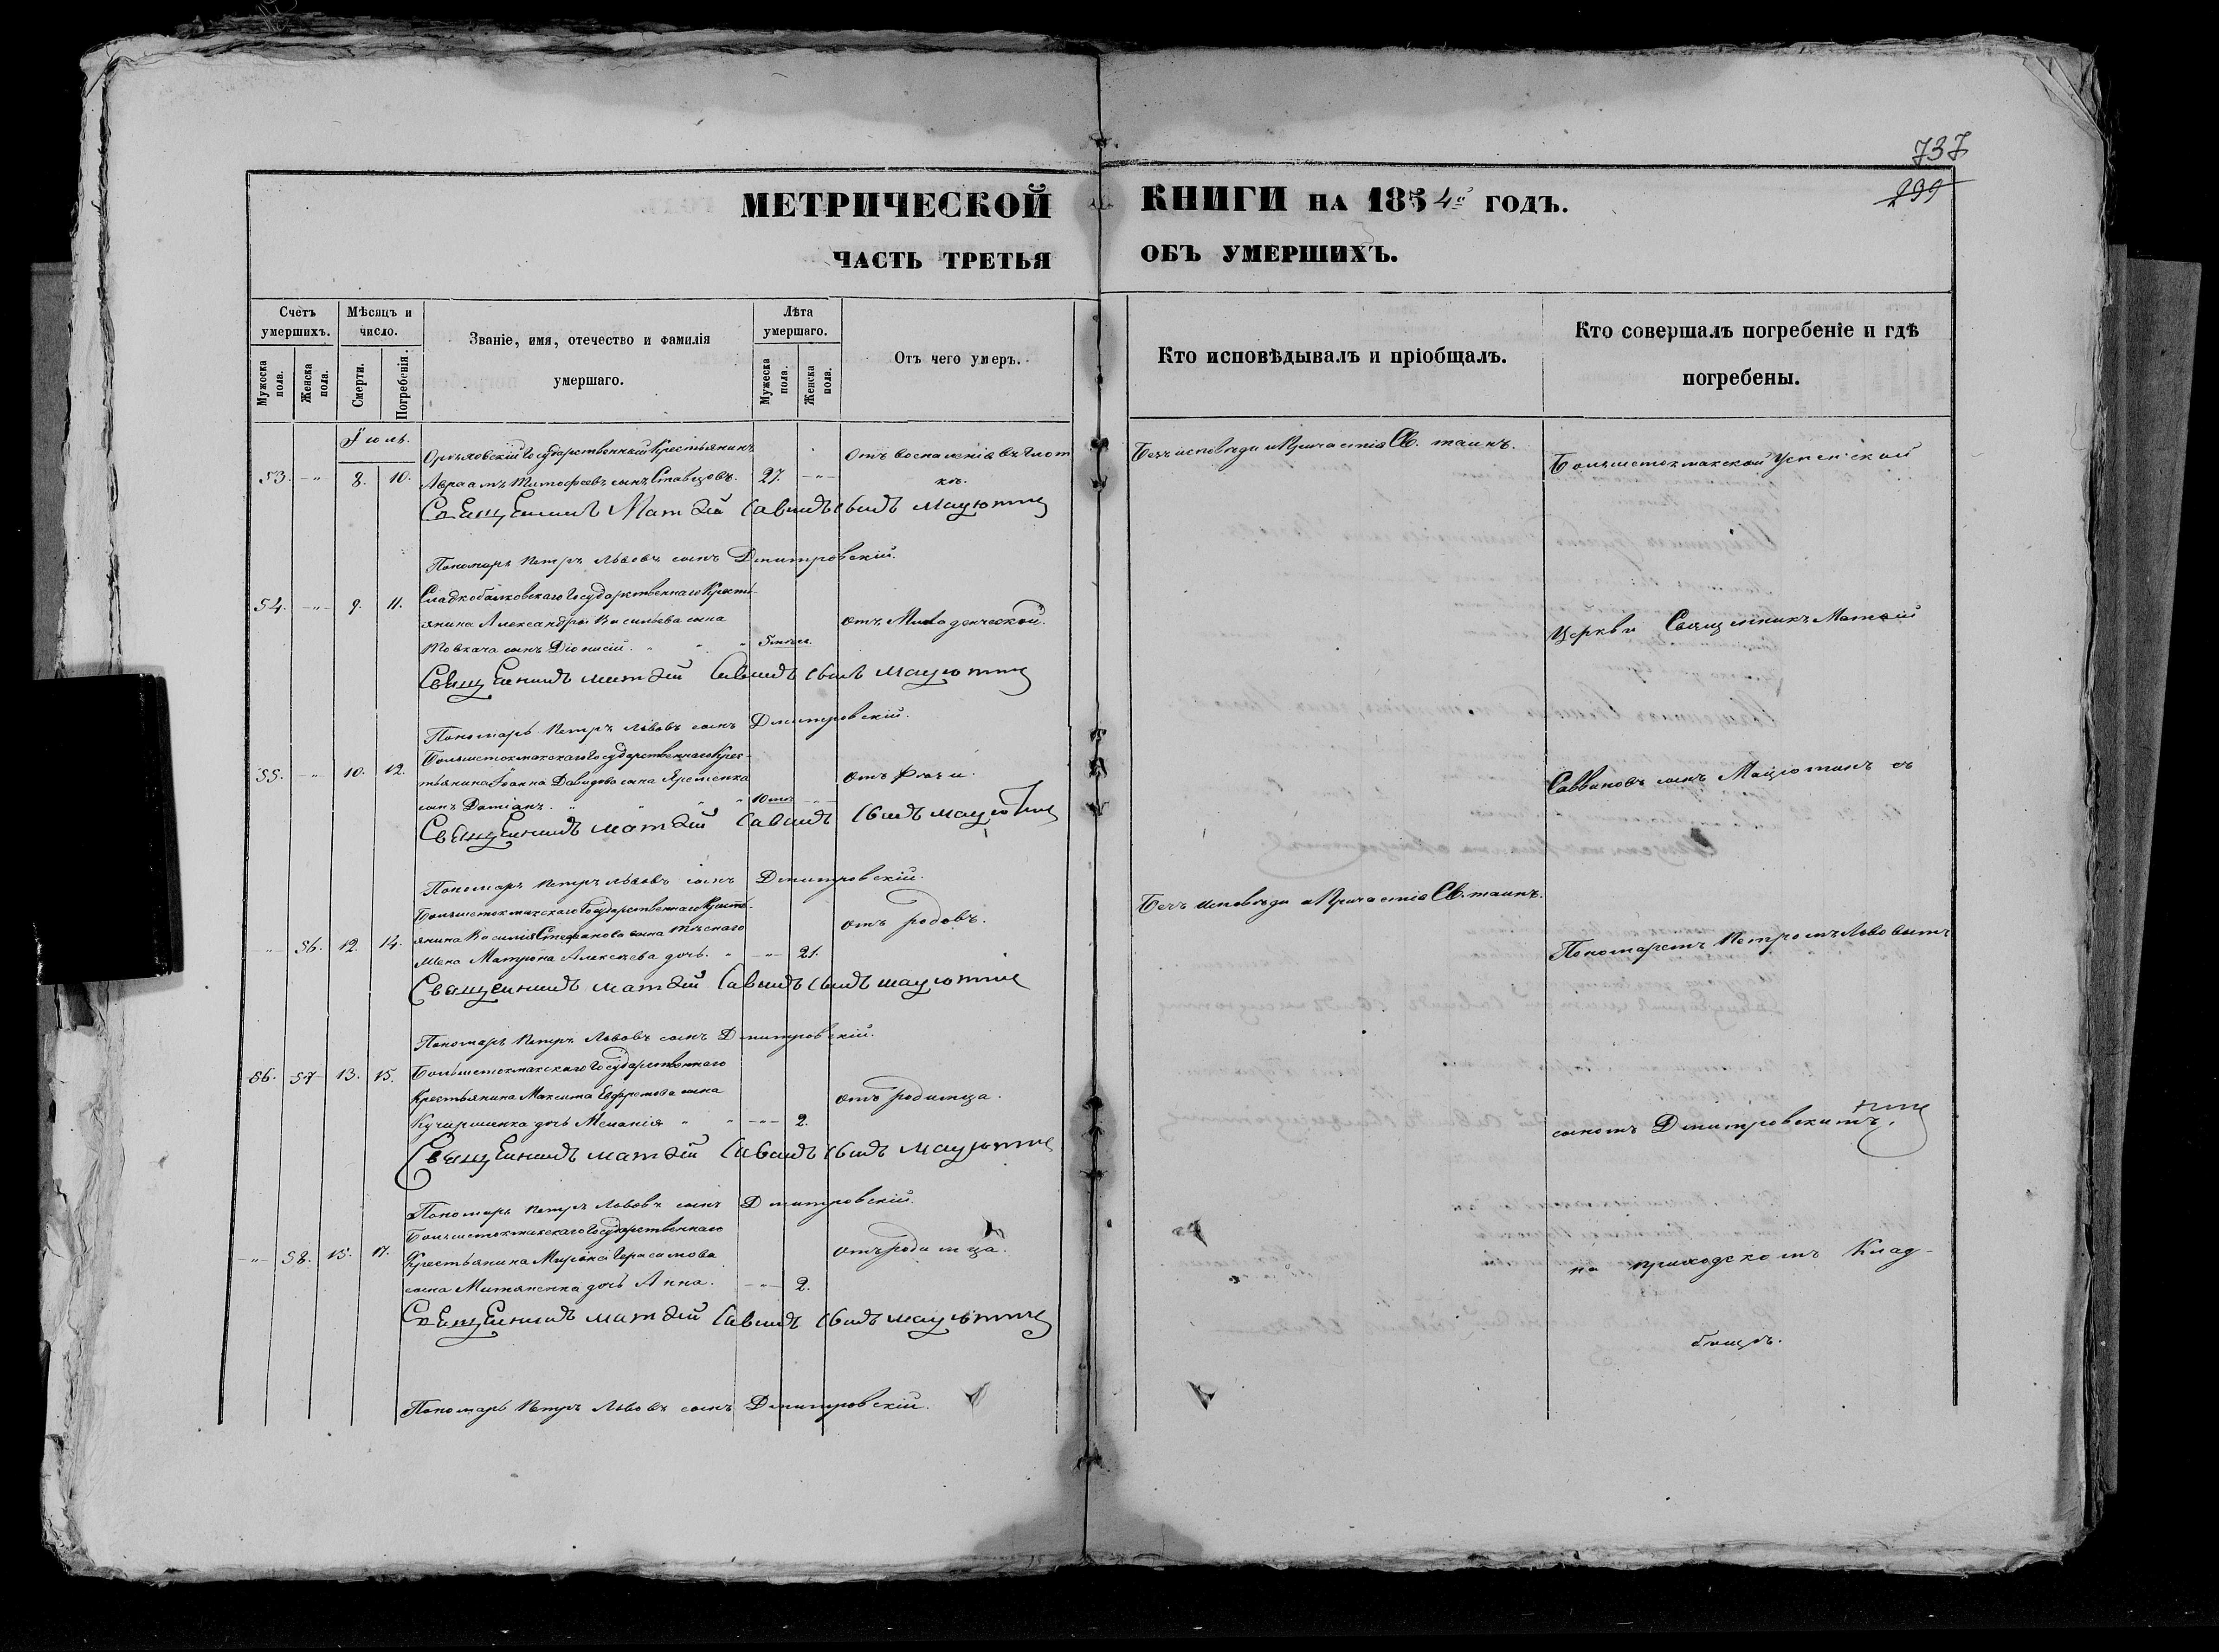 737
299
МЕТРИЧЕСКОЙ КНИГИ НА 1854го ГОДЪ.
ЧАСТЬ ТРЕТЬЯ ОБЪ УМЕРШИХЪ.
Счетъ умершихъ.
Мужеска пола.
Женска пола.
Мѣсяцъ и число.
Смерти.
Погребенія.
Званіе, имя, отечество и фамилія умершаго.
Лѣта умершаго.
Мужеска пола.
Женска пола.
Отъ чего умеръ.
Кто исповѣдывалъ и пріобщалъ.
Кто совершалъ погребеніе и гдѣ погребены.
Іюль.
Орѣховскій Государственный Крестьянинъ
53. -"- 8. 10. Авраамъ Тимофеевъ сынъ Ставцовъ. 27. -"-
Отъ воспаленія въ глот
кѣ.
Безъ исповѣди и Причастія Св. таинъ.
Священникъ Матѳій Савинъ сынъ Мацютинъ
Пономарь Петръ Львовъ сынъ Дмитровскій.
54. -"- 9. 11. Сладкобалковскаго Государственнаго Кресть-
янина Александра Васильева сына
Товкача сынъ Діонисій. " " " 5 мѣс.
отъ Младенческой.
Священникъ Матѳій Савинъ сынъ Мацютинъ
Пономарь Петръ Львовъ сынъ Дмитровскій.
55. -"- 10. 12. Большетокмакскаго Государственнаго Крес-
тьянина Іоанна Давидова сына Яременка
сынъ Даміанъ. " " " " 10 мѣс. -"-
Священникъ Матѳій Савинъ сынъ Мацютинъ
Пономарь Петръ Львовъ сынъ Дмитровскій.
-"- 56. 12. 14. Большетокмакскаго Государственнаго Кресть-
янина Василія Стефанова сына
жена Матрона Алексѣева дочь. " -"- 21.
отъ родовъ.
Безъ исповѣди и Причастія Св. таинъ.
Священникъ Матѳій Савинъ сынъ Мацютинъ
Пономарь Петръ Львовъ сынъ Дмитровскій.
56. 57 13. 15. Большетокмакскаго Государственнаго
Крестьянина Максима Евфремова сына
дочь Меланія " " -"- 2.
отъ родимца.
Священникъ Матѳій Савинъ сынъ Мацютинъ
Пономарь Петръ Львовъ сынъ Дмитровскій.
-"- 58. 15. 17. Большетокмакскаго Государственнаго
Крестьянина Мирона Герасимова
сына Митяненка дочь Анна. -"- 2.
отъ родимца.
Священникъ Матѳій Савинъ сынъ Мацютинъ
Пономарь Петръ Львовъ сынъ Дмитровскій.
Большетокмакской Успенской
Церкви Священникъ Матѳій
Саввиновъ сынъ Мацютинъ съ
Пономаремъ Петромъ Львовымъ
сыномъ Дмитровскимъ,
на приходскомъ Клад-
бищѣ.